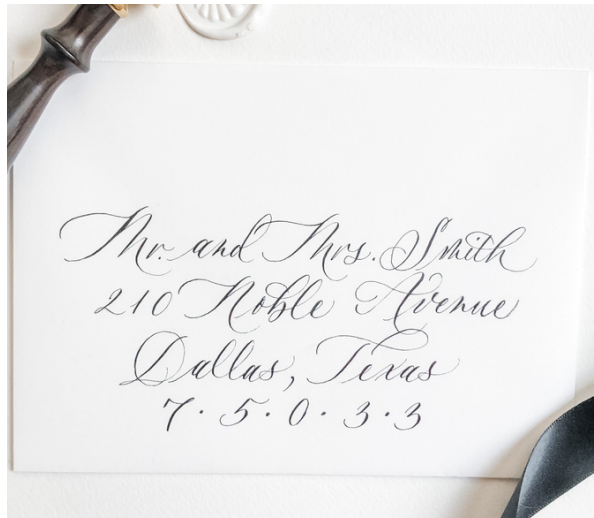 Mr. and Mrs. Smith
210 Noble Avenue
Dallas, Texas
7·5·0·3·3